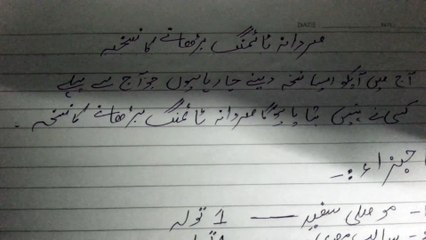 مردانہ ٹائمنگ بڑھانے کا نسخہ
آج میں آپکو ایسا نسخہ دینے جا رہا ہوں جو آج سے پہلے
کسی نے نہیں بتایا ہوگا مردانہ ٹائمنگ بڑھانے کا نسخہ۔
اجزاء:-
موصلی سفید — 1 تولہ